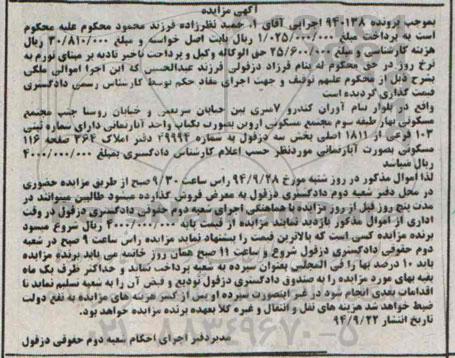 آگهی مزایده
بموجب پرونده ۹۴۰۱۳۸ اجرایی آقای ۱. حمید نظرزاده فرزند محمود محکوم علیه محکوم
است به پرداخت مبلغ ۱/۰۲۵/۰۰۰/۰۰۰ ریال بابت اصل خواسته و مبلغ ۳۰/۸۱۰/۰۰۰ ریال
هزینه کارشناسی و مبلغ ۲۵/۶۰۰/۰۰۰ حق الوکاله وکیل و پرداخت تاخیر تادیه بر مبنای تورم به
نرخ روز در حق محکوم له بنام فرزاد دزفولی فرزند عبدالحسین که این اجرا اموالی ملکی
بشرح ذیل از محکوم علیهم توقیف و جهت اجرای مفاد حکم توسط کارشناس رسمی دادگستری
قیمت گذاری گردیده است
واقع در بلوار پیام آوران کندرو ۷متری بین خیابان شریعتی و خیابان روستا جنب مجتمع
مسکونی بهار طبقه سوم مجتمع مسکونی اروین بصورت یکباب واحد آپارتمانی دارای شماره ثبتی
۱۰۳ فرعی از ۱۸۱۱ اصلی بخش سه دزفول به شماره ۴۹۹۹۴ دفتر املاک ۳۶۴ صفحه ۱۱۶
مسکونی بصورت آپارتمانی موردنظر حسب اعلام کارشناس دادگستری بمبلغ ۴۰۰۰/۰۰۰/۰۰۰
ریال میباشد
لذا اموال مذکور در روز شنبه مورخ ۹۴/۹/۲۸ راس ساعت ۹/۳۰ صبح از طریق مزایده حضوری
در محل دفتر شعبه دوم دادگستری دزفول به معرض فروش گذارده میشود طالبین میتوانند در
مدت پنج روز قبل از روز مزایده با هماهنگی اجرای شعبه دوم حقوقی دادگستری دزفول در وقت
اداری از اموال مذکور بازدید نمایند مزایده از قیمت پایه ۴۰۰۰/۰۰۰/۰۰۰ ریال شروع میشود
برنده مزایده کسی است که بالاترین قیمت را پیشنهاد نماید مزایده راس ساعت ۹ صبح در شعبه
دوم حقوقی دادگستری دزفول شروع و ساعت ۱۱ صبح همان روز خاتمه می یابد برنده مزایده
باید ۱۰ درصد بها را فی المجلس بعنوان سپرده به شعبه پرداخت نماید و حداکثر ظرف یک ماه
بقیه بهای مورد مزایده را به صندوق دادگستری دزفول تودیع و قبض آن را به شعبه تسلیم نماید تا
اقدامات بعدی انجام شود در غیر اینصورت سپرده او پس از کسر هزینه های مزایده به نفع دولت
ضبط خواهد شد هزینه های نقل و انتقال و غیره کلا بعهده برنده مزایده خواهد بود.
تاریخ انتشار ۹۴/۹/۲۲
مدیر دفتر اجرای احکام شعبه دوم حقوقی دزفول
۰۲۱-۸۸۳۴۹۶۷۰-۵